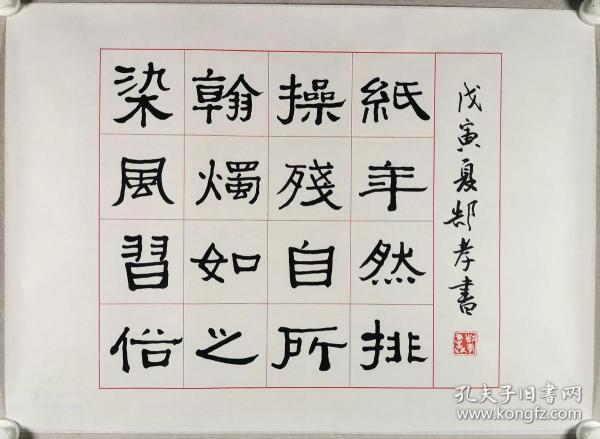 染翰操紙
風燭殘年
習如自然
俗之所排
戊寅夏郜孝書
孔夫子旧书网
www.kongfz.com